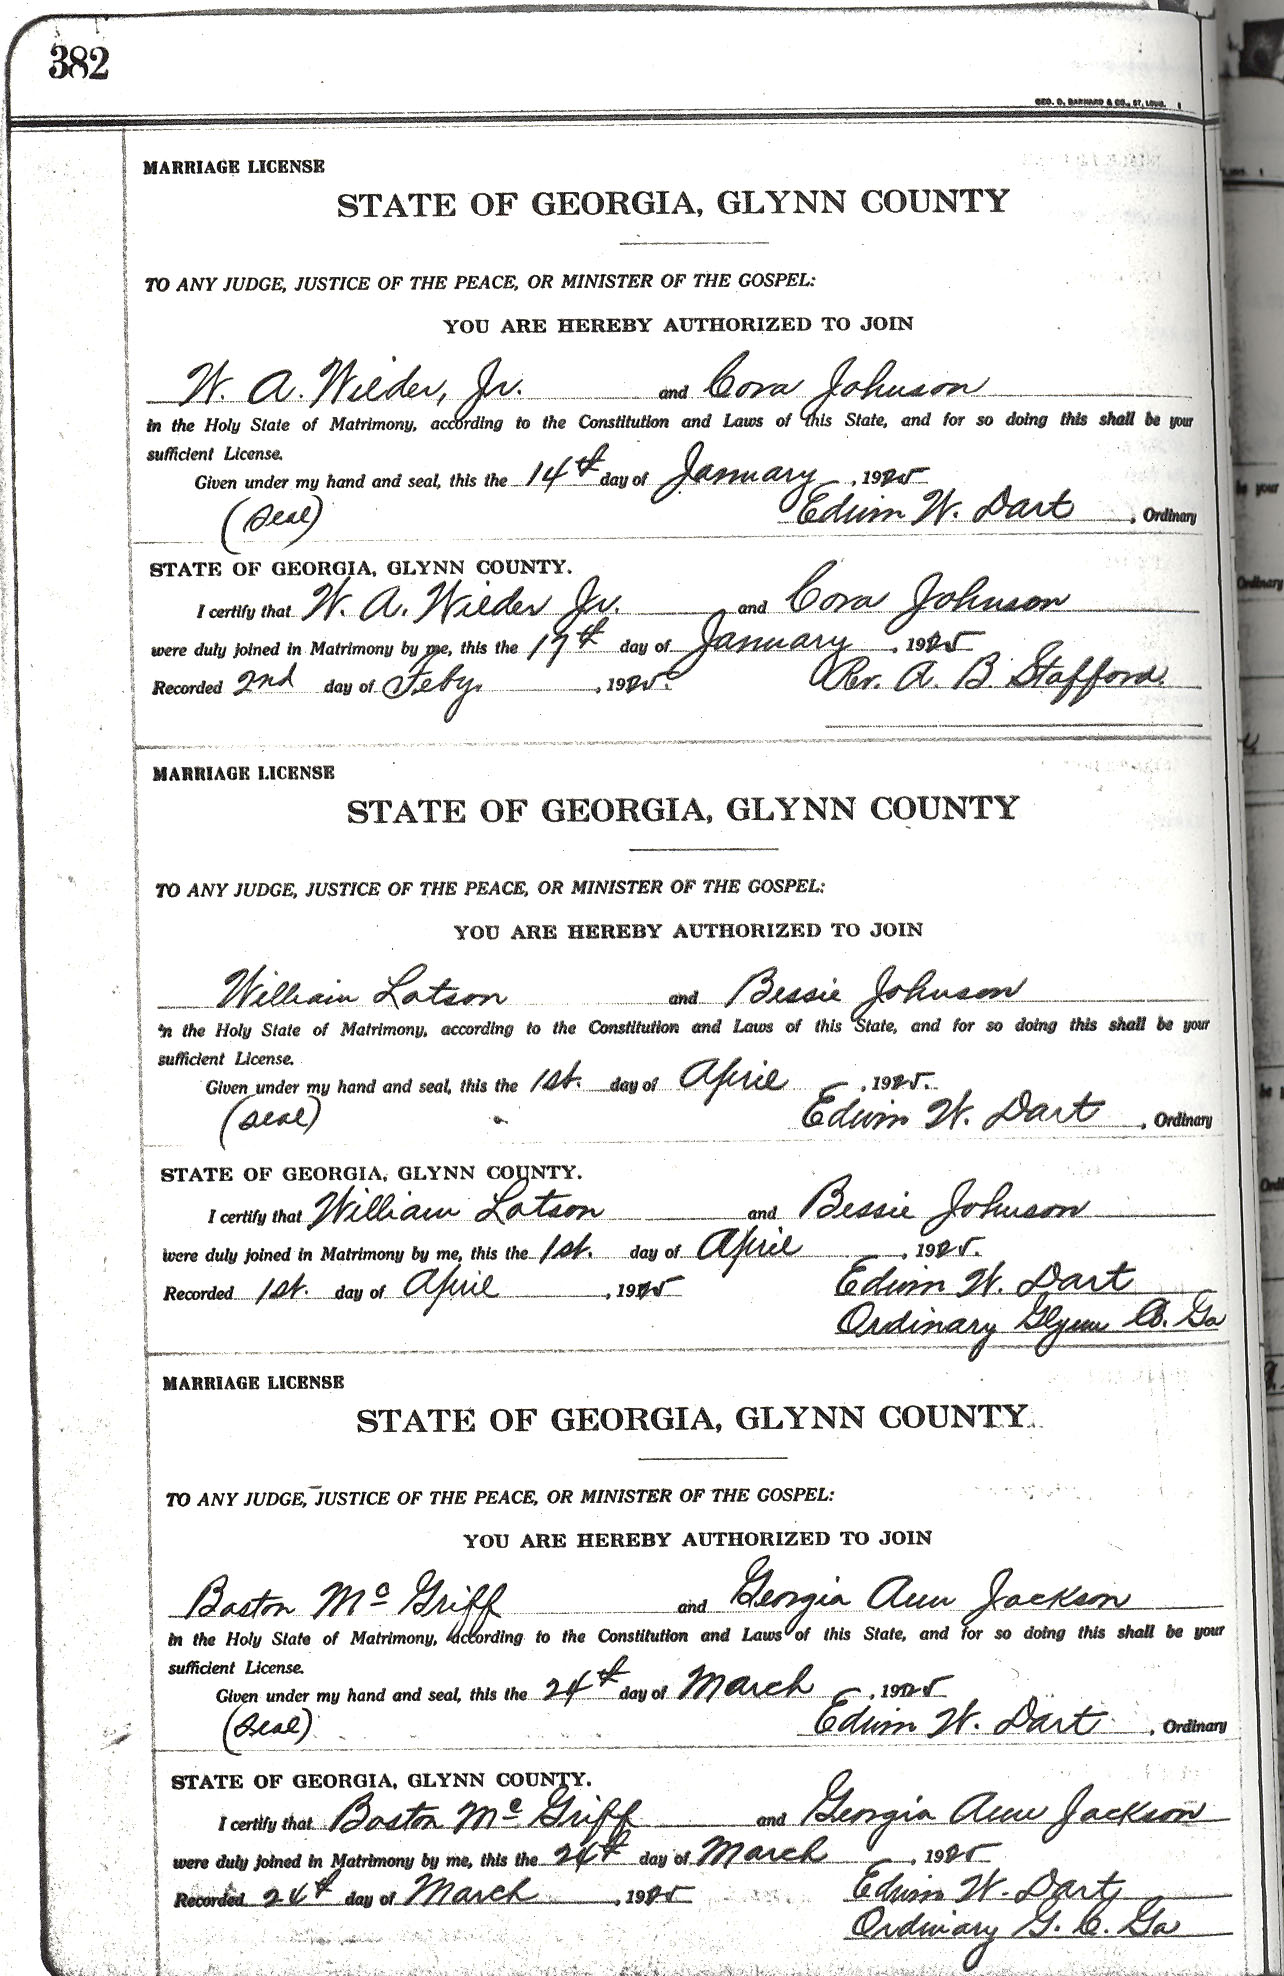 382
GEO. D. BARNARD & CO., ST. LOUIS.
MARRIAGE LICENSE
STATE OF GEORGIA, GLYNN COUNTY
TO ANY JUDGE, JUSTICE OF THE PEACE, OR MINISTER OF THE GOSPEL:
YOU ARE HEREBY AUTHORIZED TO JOIN
W. A. Wilder, Jr. and Cora Johnson
in the Holy State of Matrimony, according to the Constitution and Laws of this State, and for so doing this shall be your
sufficient License.
Given under my hand and seal, this the 14th day of January, 1925
(Seal) Edwin W. Dart, Ordinary
STATE OF GEORGIA, GLYNN COUNTY.
I certify that W. A. Wilder Jr. and Cora Johnson
were duly joined in Matrimony by me, this the 17th day of January, 1925
Recorded 2nd day of Feby., 1925. Rev. A. B. Stafford.
MARRIAGE LICENSE
STATE OF GEORGIA, GLYNN COUNTY
TO ANY JUDGE, JUSTICE OF THE PEACE, OR MINISTER OF THE GOSPEL:
YOU ARE HEREBY AUTHORIZED TO JOIN
William Latson and Bessie Johnson
in the Holy State of Matrimony, according to the Constitution and Laws of this State, and for so doing this shall be your
sufficient License.
Given under my hand and seal, this the 1st. day of April, 1925.
(Seal) Edwin W. Dart, Ordinary
STATE OF GEORGIA, GLYNN COUNTY.
I certify that William Latson and Bessie Johnson
were duly joined in Matrimony by me, this the 1st. day of April, 1925.
Recorded 1st. day of April, 1925 Edwin W. Dart
Ordinary Glynn Co. Ga
MARRIAGE LICENSE
STATE OF GEORGIA, GLYNN COUNTY
TO ANY JUDGE, JUSTICE OF THE PEACE, OR MINISTER OF THE GOSPEL:
YOU ARE HEREBY AUTHORIZED TO JOIN
Boston McGriff and Georgia Ann Jackson
in the Holy State of Matrimony, according to the Constitution and Laws of this State, and for so doing this shall be your
sufficient License.
Given under my hand and seal, this the 24th day of March, 1925
(Seal) Edwin W. Dart, Ordinary
STATE OF GEORGIA, GLYNN COUNTY.
I certify that Boston McGriff and Georgia Ann Jackson
were duly joined in Matrimony by me, this the 24th day of March, 1925
Recorded 24th day of March, 1925 Edwin W. Dart
Ordinary G. C. Ga